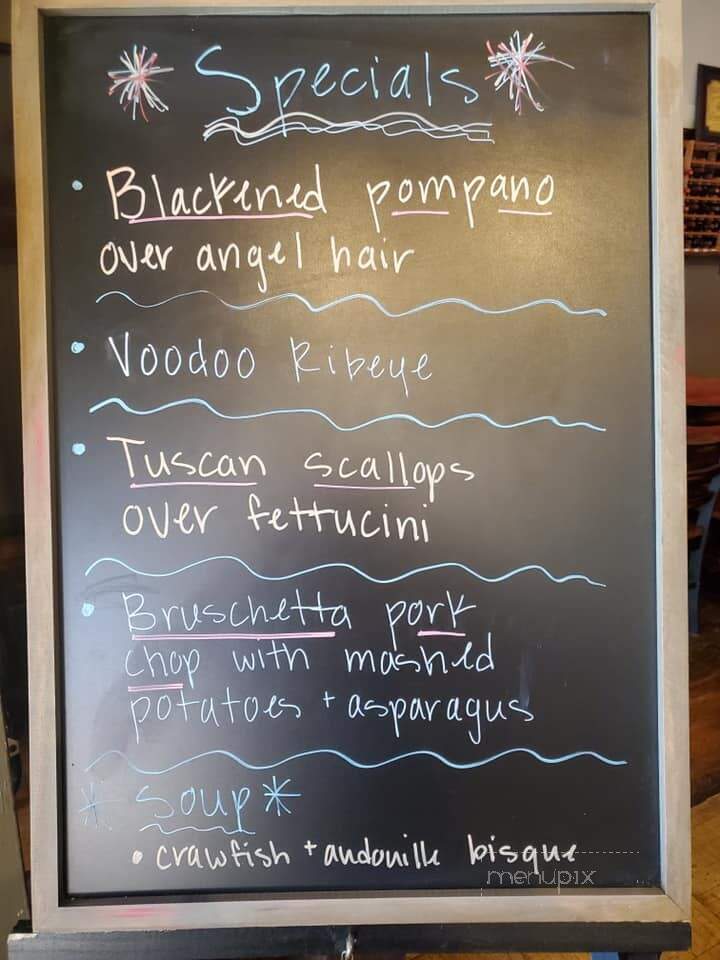 Specials
• Blackened pompano
over angel hair
• Voodoo Ribeye
• Tuscan scallops
over fettucini
• Bruschetta pork
chop with mashed
potatoes + asparagus
* Soup *
• crawfish + andouille bisque
menupix